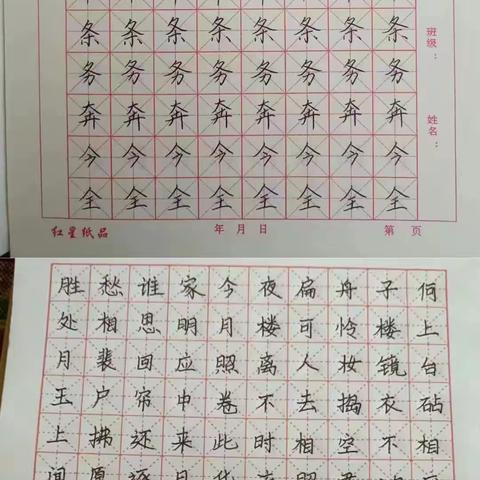 条条条条条条条条
务务务务务务务务
奔奔奔奔奔奔奔奔
今今今今今今今今
全全全全全全全全
班级：
姓名：
红星纸品 年 月 日 第 页
胜愁谁家今夜扁舟子何
处相思明月楼可怜楼上
月裴回应照离人妆镜台
玉户帘中卷不去捣衣砧
上拂还来此时相望不相
闻愿逐月华流照君